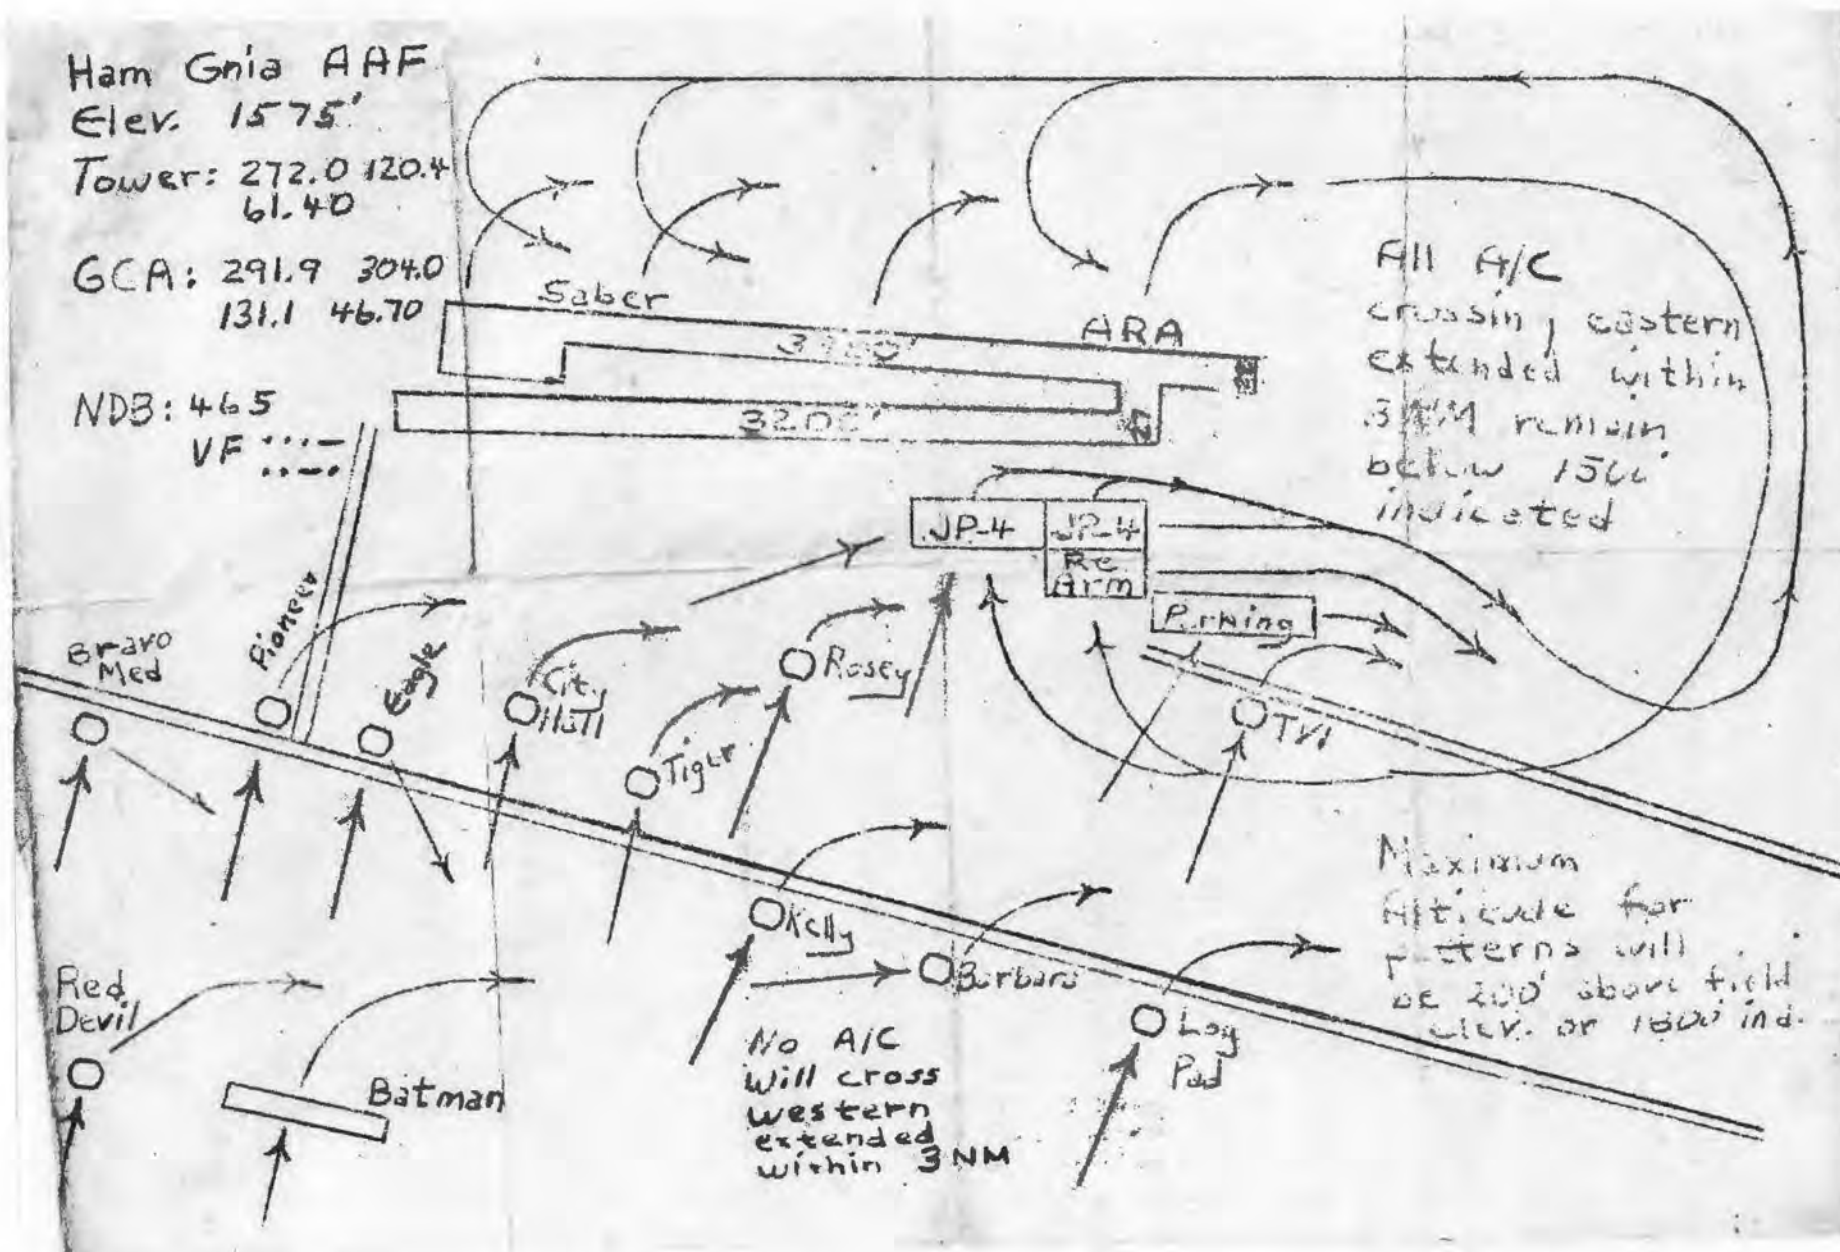 Ham Gnia AAF
Elev. 1575'
Tower: 272.0 120.4
61.40
GCA: 291.9 304.0
131.1 46.70
NDB: 465
VF ···–
··–·
Saber
ARA
3200'
All A/C
crossing eastern
extended within
3 NM remain
below 1500'
indicated
JP-4
JP-4
Re
Arm
Parking
Bravo
Med
Pioneer
Eagle
City
Hall
Tiger
Rosey
TVI
Kelly
Barbara
Log
Pad
Red
Devil
Batman
No A/C
will cross
western
extended
within 3 NM
Maximum
Altitude for
patterns will
be 200' above field
elev. or 1800' ind.